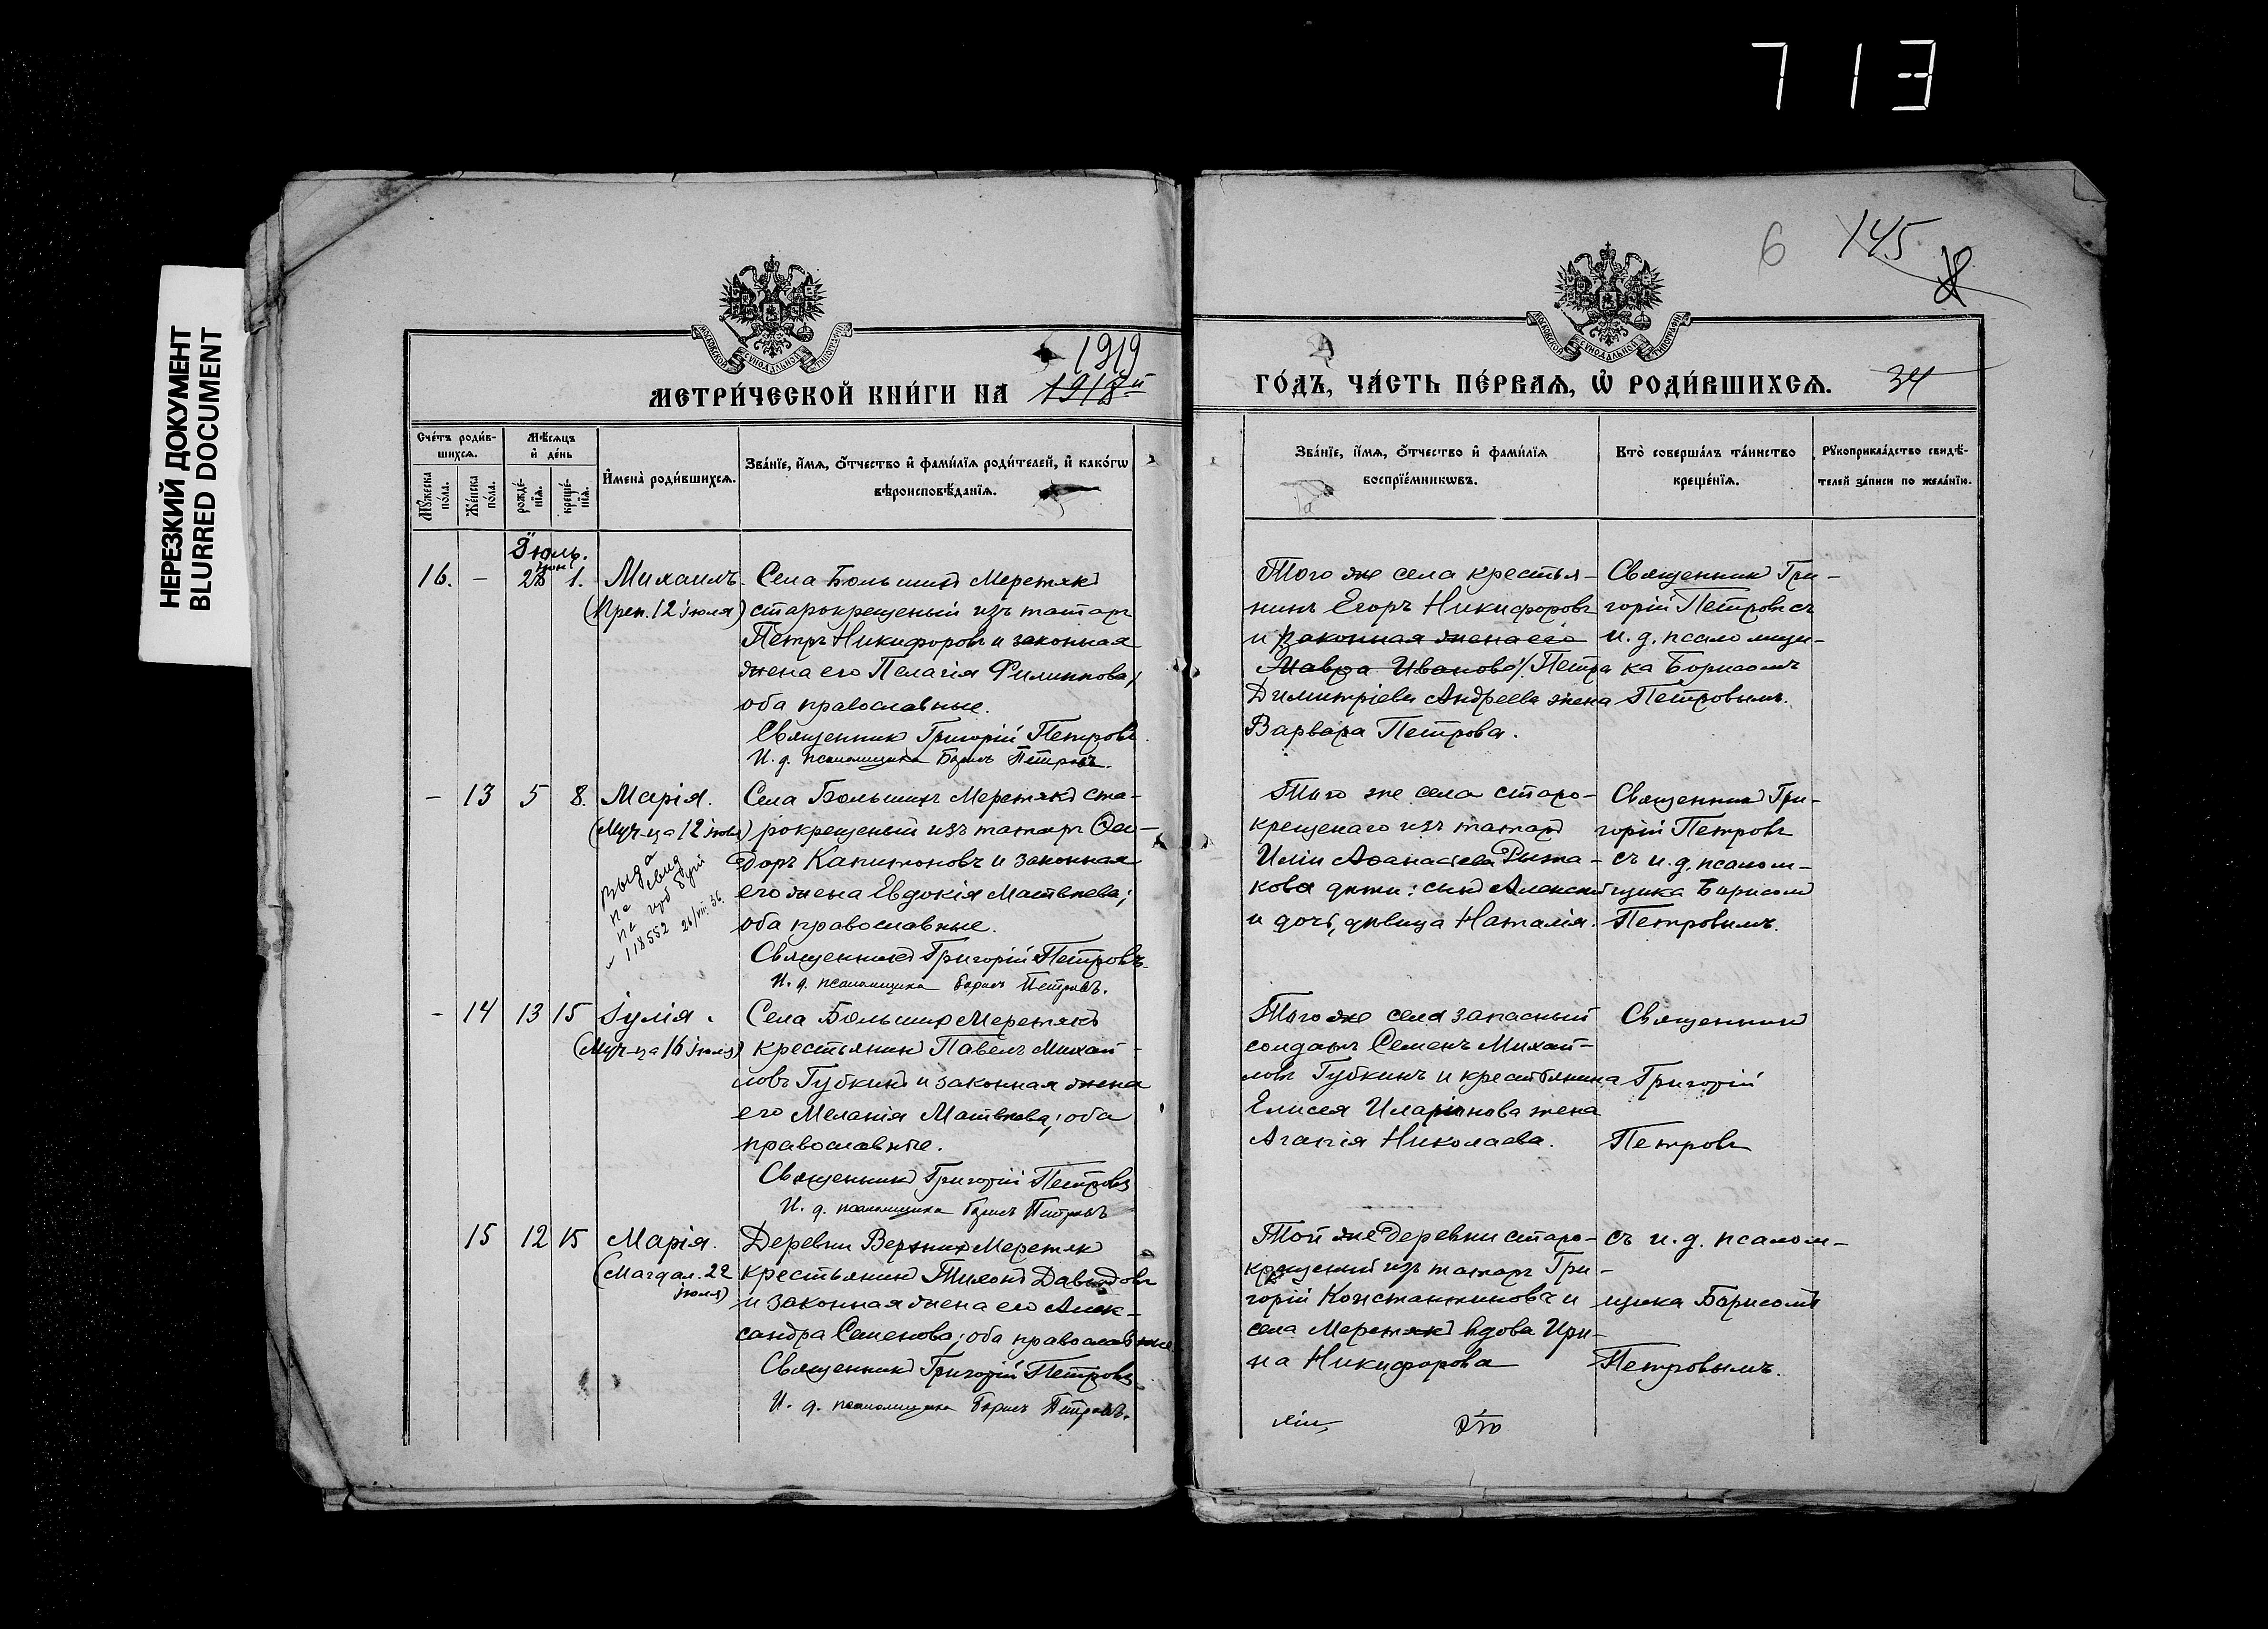 713
НЕРЕЗКИЙ ДОКУМЕНТ
BLURRED DOCUMENT
6 145
МОСКОВСКОЙ СУНОДАЛЬНОЙ ТИПОГРАФІИ
МОСКОВСКОЙ СУНОДАЛЬНОЙ ТИПОГРАФІИ
1919
МЕТРИ́ЧЕСКОЙ КНИ́ГИ НА 1918й
ГО́ДЪ, ЧА́СТЬ ПЕ́РВАѦ, Ѽ РОДИ́ВШИХСѦ. 34
Сче́тъ роди́в-
шихсѧ.
Мꙋ́жеска
по́ла.
Же́нска
по́ла.
Мѣ́сѧцъ
и҆ де́нь
рожде́-
нїѧ.
креще́-
нїѧ.
И҆мена̀ роди́вшихсѧ.
Зва́нїе, и҆́мѧ, ѻ҆́тчество и҆ фами́лїѧ роди́телей, и҆ како́гѡ
вѣроисповѣ́данїѧ.
Зва́нїе, и҆́мѧ, ѻ҆́тчество и҆ фами́лїѧ
воспрїе́мникѡвъ.
Кто̀ соверша́лъ та́инство
креще́нїѧ.
Рꙋкоприкла́дство свидѣ́-
телей за́писи по жела́нїю.
Іюль.
16. – 28 іюн 1. Михаилъ.
(Преп. 12 іюля)
Села Большихъ Меретякъ
старокрещеный изъ татаръ
Петръ Никифоровъ и законная
жена его Пелагія Филиппова,
оба православные.
Священникъ Григорій Петровъ
И. д. псаломщика Борисъ Петровъ.
Того же села крестья-
нинъ Егоръ Никифоровъ
и законная жена его
Мавра Иванова/. Петра
Димитріева Андреева жена
Варвара Петрова.
Священникъ Гри-
горій Петровъ съ
и. д. псаломщи-
ка Борисомъ
Петровымъ.
– 13 5 8. Марія.
(Муч-ца 12 іюля)
118552 26/VII. 36.
Села Большихъ Меретякъ ста-
рокрещеный изъ татаръ Ѳео-
доръ Капитоновъ и законная
его жена Евдокія Матвѣева;
оба православные.
Священникъ Григорій Петровъ
И. д. псаломщика Борисъ Петровъ.
Того же села старо-
крещенаго изъ татаръ
Иліи Аѳанасьева Рыжа-
кова дѣти: сынъ Алексѣй
и дочь, дѣвица Наталія.
Священникъ Гри-
горій Петровъ
съ и. д. псалом-
щика Борисомъ
Петровымъ.
– 14 13 15 Іулія.
(Муч-ца 16 іюля)
Села Большихъ Меретякъ
крестьянинъ Павелъ Михай-
ловъ Губкинъ и законная жена
его Меланія Матвѣева; оба
православные.
Священникъ Григорій Петровъ
И. д. псаломщика Борисъ Петровъ
Того же села запасный
солдатъ Семенъ Михай-
ловъ Губкинъ и крестьянина
Елисея Иларіонова жена
Агапія Николаева.
Священникъ
Григорій
Петровъ
15 12 15 Марія.
(Магдал. 22
іюля)
Деревни Верхнихъ Меретякъ
крестьянинъ Тихонъ Давыдовъ
и законная жена его Алек-
сандра Семенова; оба православные
Священникъ Григорій Петровъ
И. д. псаломщика Борисъ Петровъ.
Той же деревни старо-
крещеный изъ татаръ Гри-
горій Константиновъ и
села Меретякъ вдова Ири-
на Никифорова
съ и. д. псалом-
щика Борисомъ
Петровымъ.